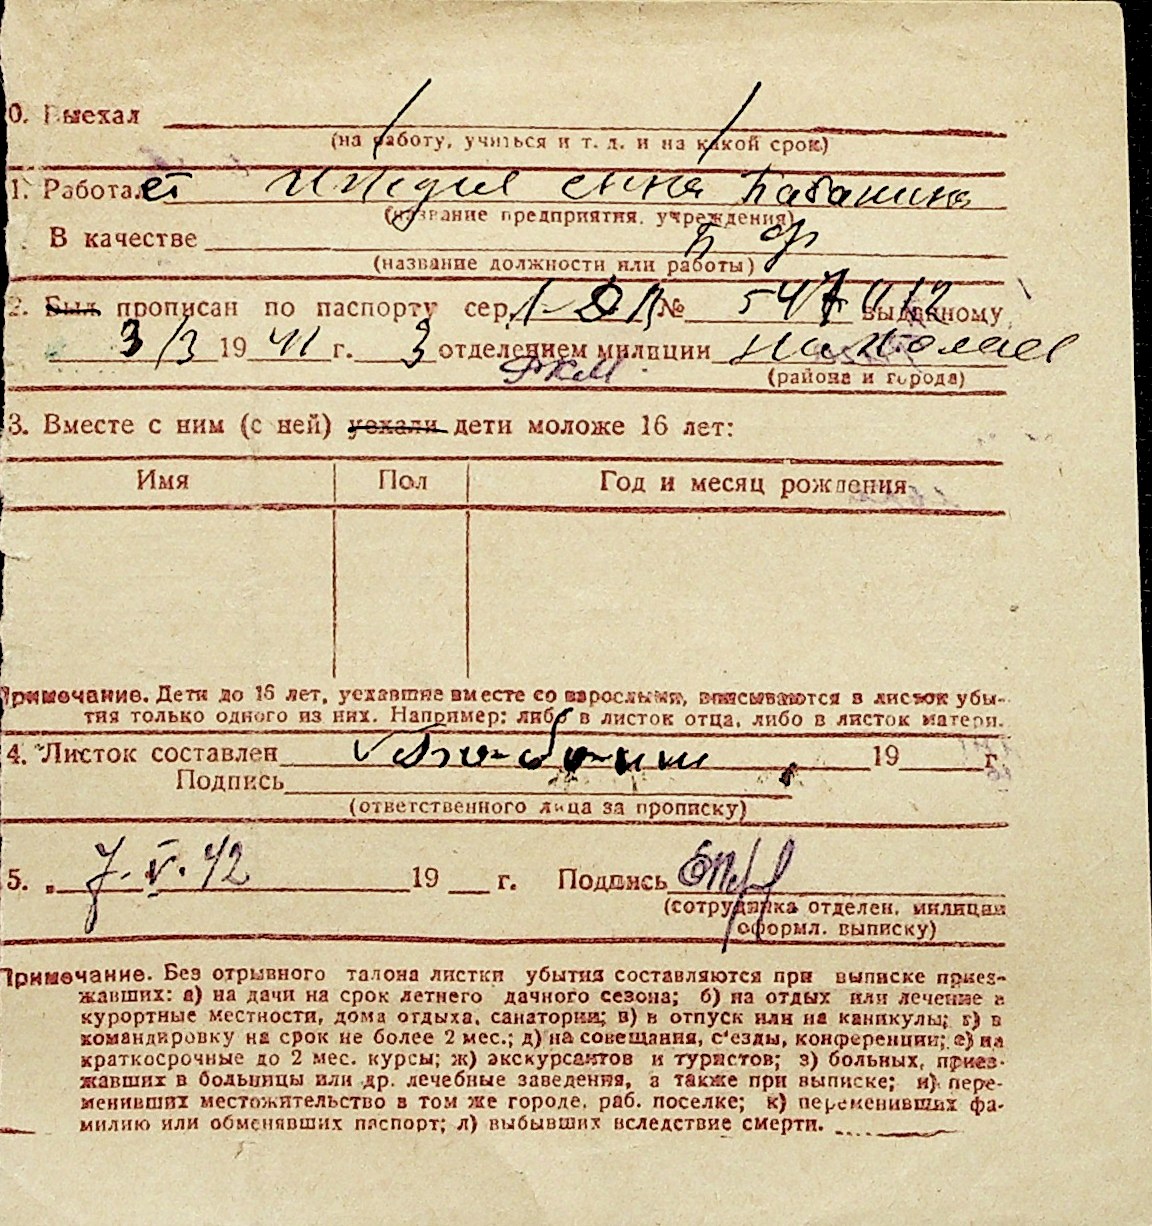 0. Выехал
(на работу, учиться и т. д. и на какой срок)
1. Работает иждив сына Бабанина
(название предприятия, учреждения)
В качестве
(название должности или работы)
2. Был прописан по паспорту сер. № выданному
3/3 1941 г. 3 отделением милиции Николаев
РКМ (района и города)
3. Вместе с ним (с ней) уехали дети моложе 16 лет:
Имя Пол Год и месяц рождения
Примечание. Дети до 16 лет, уехавшие вместе со взрослыми, вписываются в листок убы-
тия только одного из них. Например: либо в листок отца, либо в листок матери.
4. Листок составлен 19 г.
Подпись
(ответственного лица за прописку)
5. „ 7.V.42 19 г. Подпись
(сотрудника отделен. милиции
оформл. выписку)
Примечание. Без отрывного талона листки убытия составляются при выписке приез-
жавших: а) на дачи на срок летнего дачного сезона; б) на отдых или лечение в
курортные местности, дома отдыха, санатории; в) в отпуск или на каникулы; г) в
командировку на срок не более 2 мес.; д) на совещания, с'езды, конференции; е) на
краткосрочные до 2 мес. курсы; ж) экскурсантов и туристов; з) больных, приез-
жавших в больницы или др. лечебные заведения, а также при выписке; и) пере-
менивших местожительство в том же городе, раб. поселке; к) переменивших фа-
милию или обменявших паспорт; л) выбывших вследствие смерти.